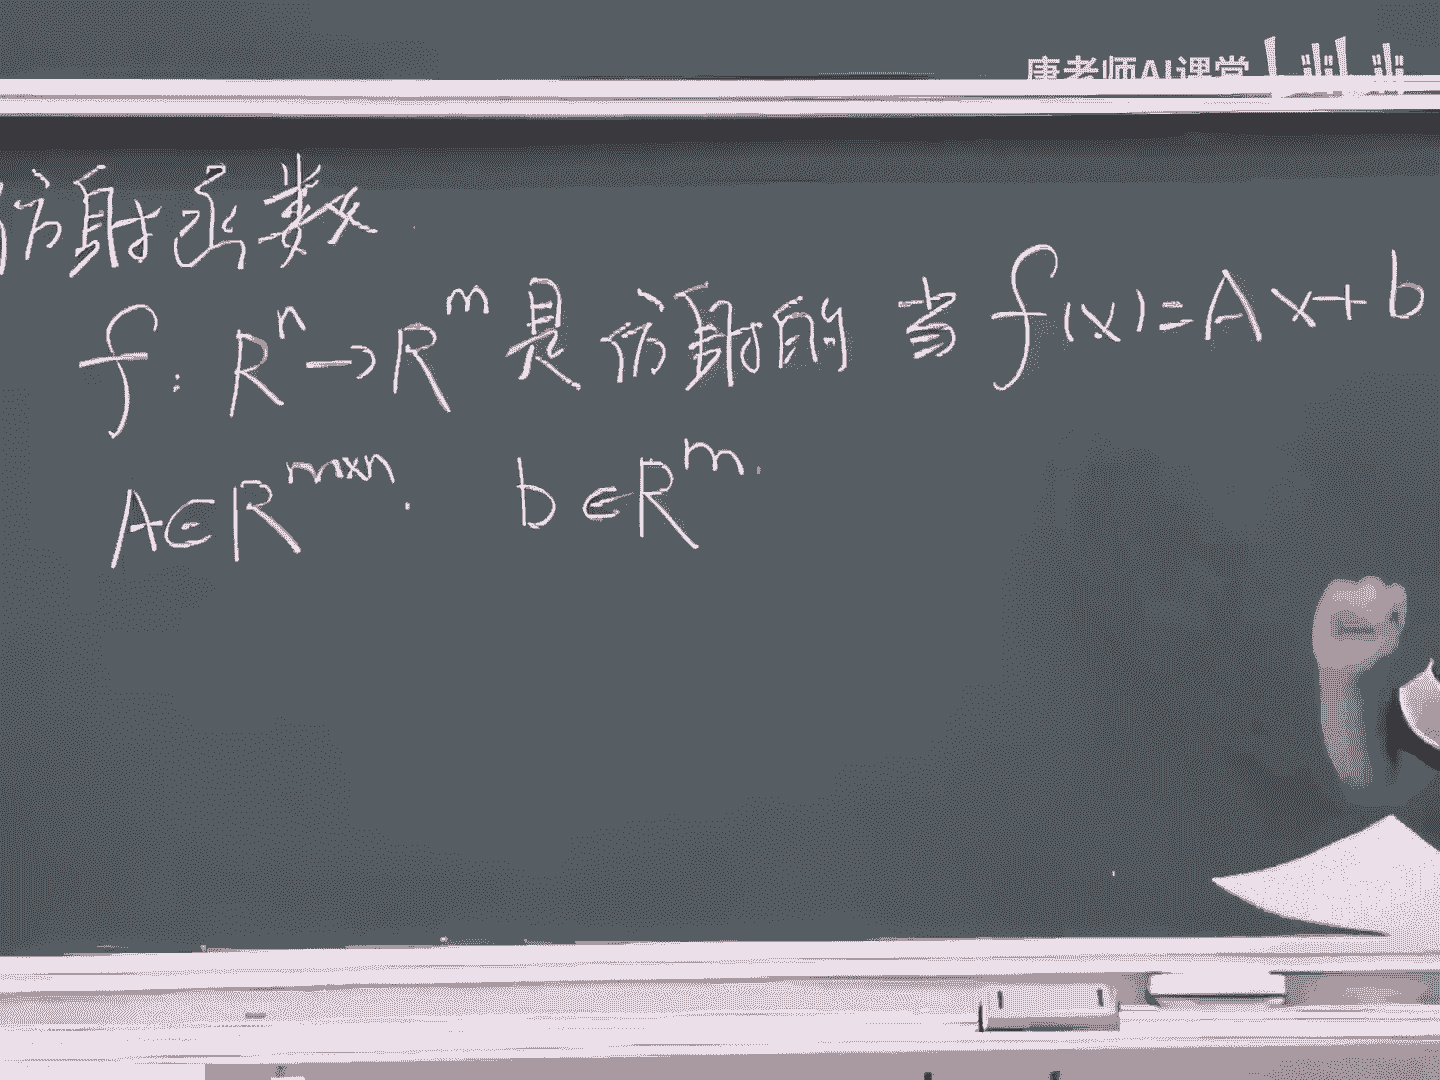 唐老师AI课堂
仿射函数
f: Rⁿ→Rᵐ 是仿射的 当 f(x)=Ax+b
A∈Rᵐˣⁿ. b∈Rᵐ.